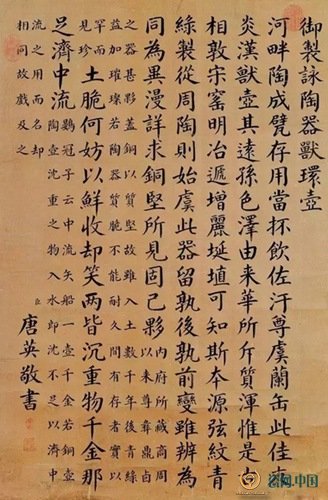 御製詠陶器獸環壺
河畔陶成甓存用當抔飲佐汙尊虞蘭缶此佳
炎漢獸壺其遠孫色澤由來華所斥質渾惟是古
相敦宋窯明冶遞增麗埏埴可知斯本源弦紋青
綠製從周陶則始虞此器留孰後孰前變雖辨為
同為異漫詳求銅堅所見固已夥
內府所藏商周
以來尊彝鼎卣
之器甚夥蓋銅以質堅故雖入土數千年後青綠
益加璀璨若陶器以質脆不能耐久間有存者實以
罕而
見珍
土脆何妨以鮮收却笑兩皆沉重物千金那
足濟中流
鶡冠子云中流矢船一壺千金若銅壺
陶壺沈重之物入水即沈不足以濟中
流之用而名却
相同故戲及之
臣唐英敬書